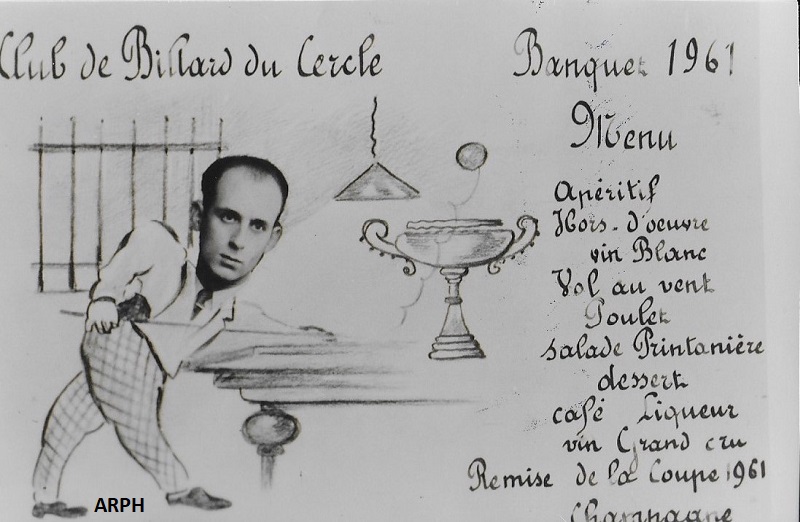 Club de Billard du Cercle
Banquet 1961
Menu
Apéritif
Hors-d'oeuvre
vin Blanc
Vol au vent
Poulet
salade Printanière
dessert
café Liqueur
vin Grand cru
Remise de la Coupe 1961
Champagne
ARPH